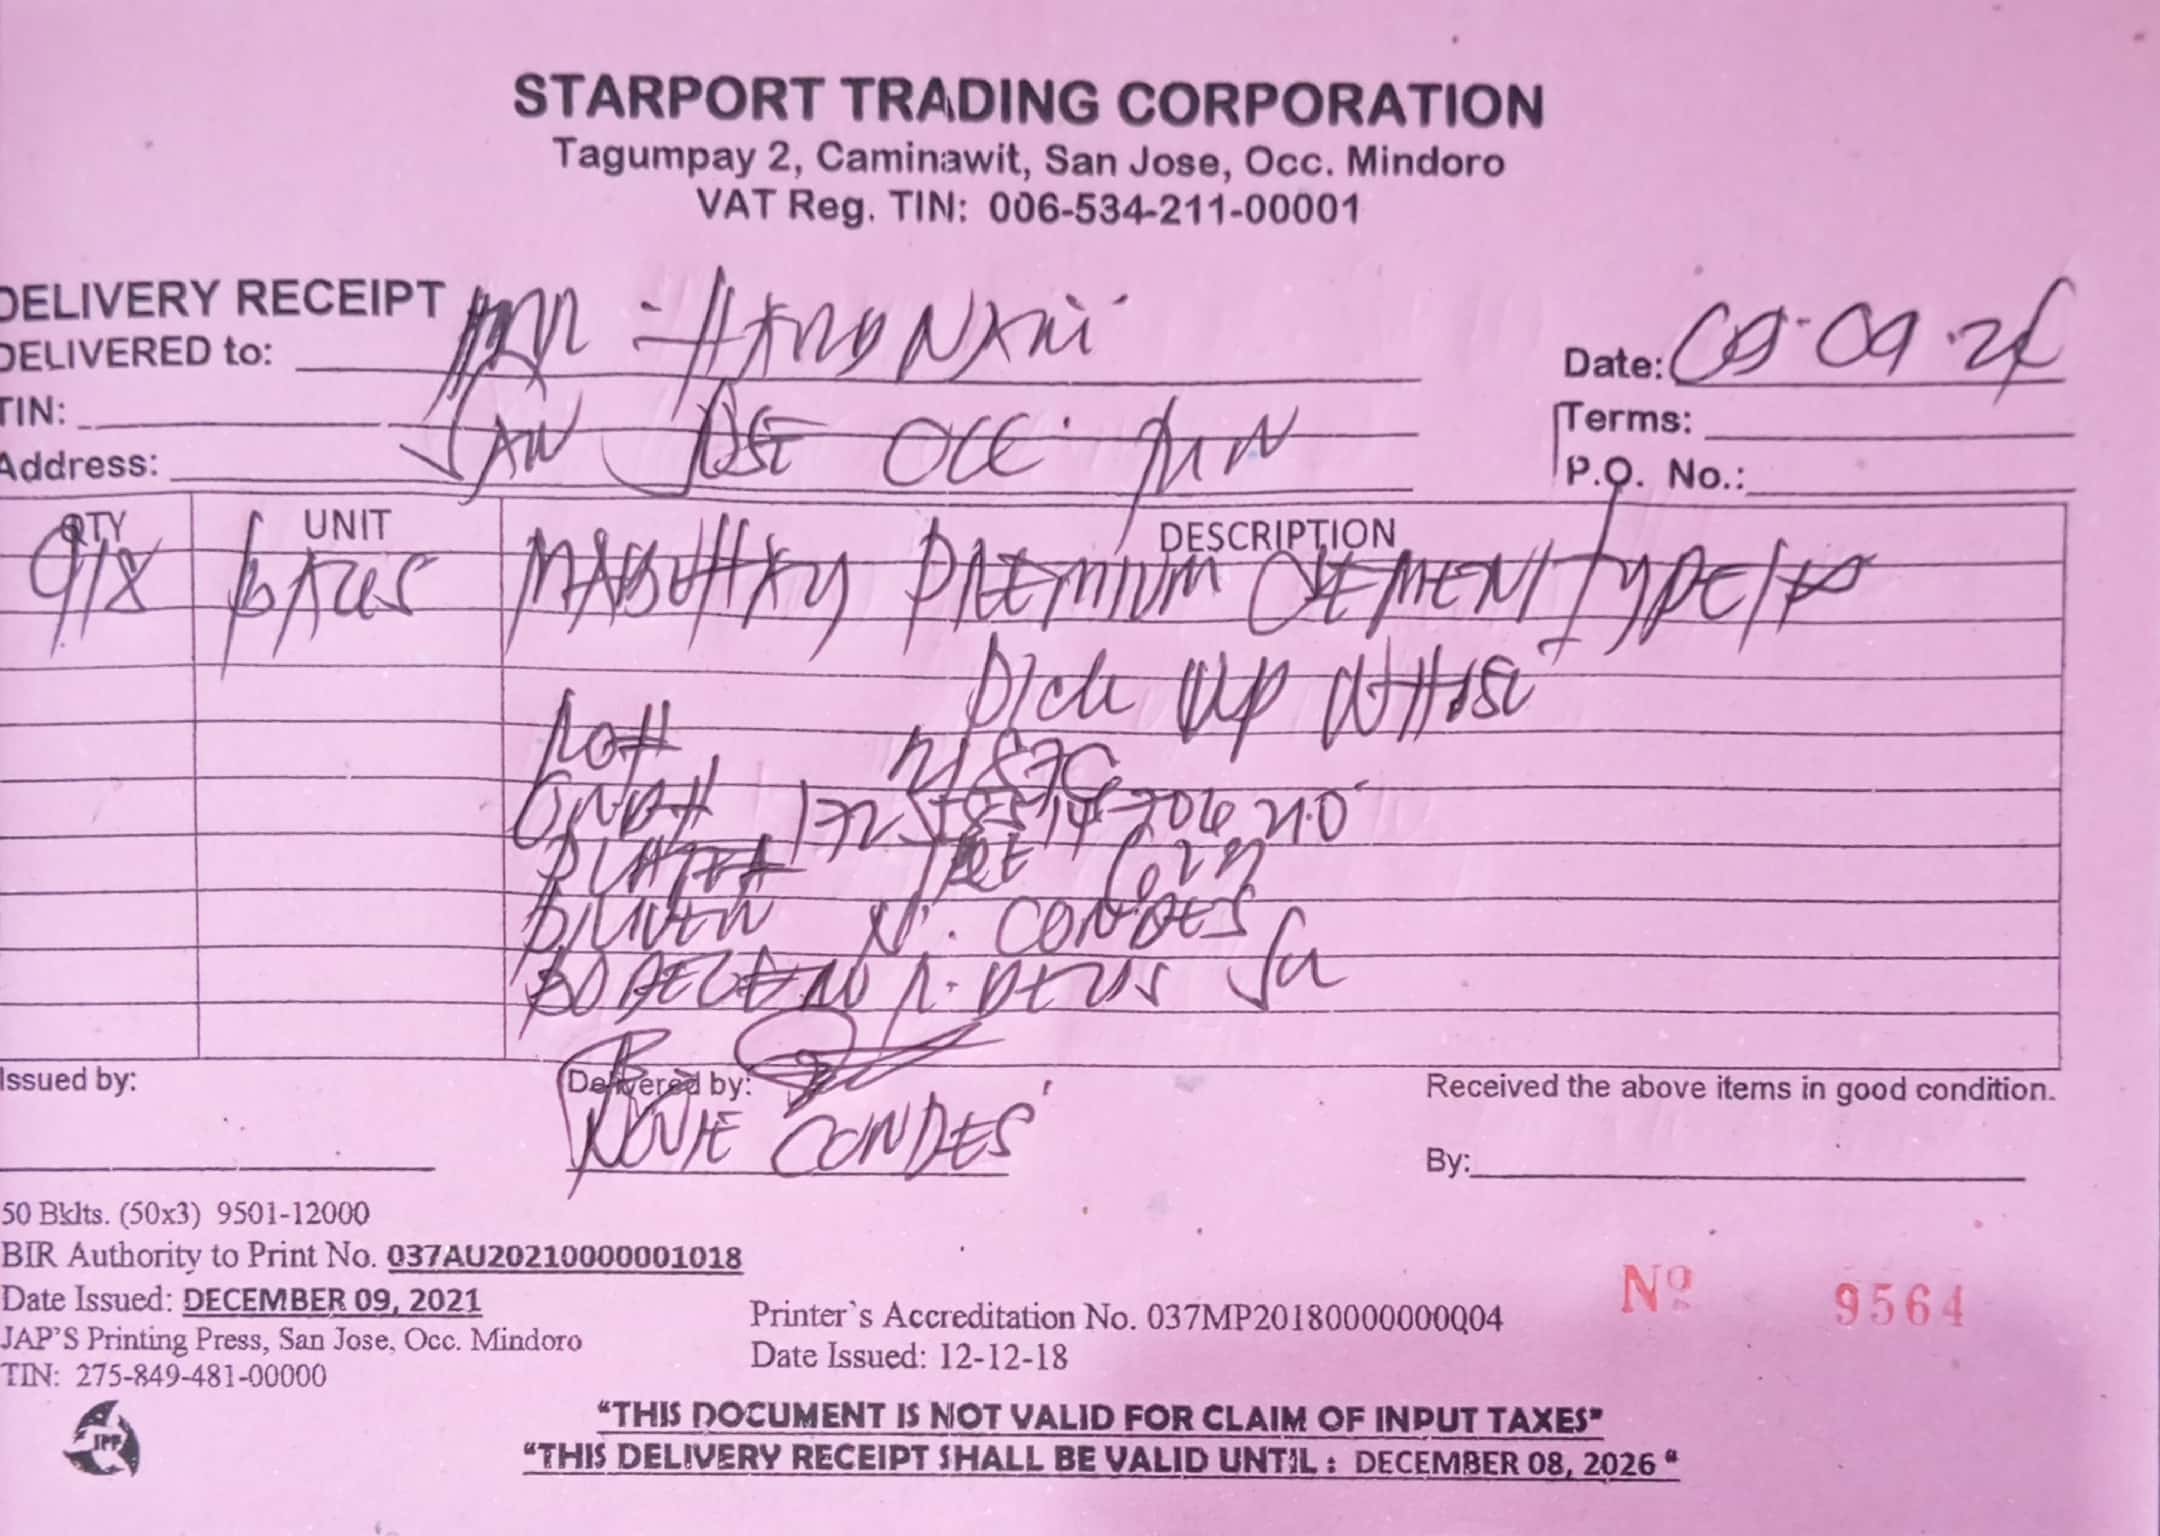 STARPORT TRADING CORPORATION
Tagumpay 2, Caminawit, San Jose, Occ. Mindoro
VAT Reg. TIN: 006-534-211-00001
DELIVERY RECEIPT
DELIVERED to:
Date: 09-09-24
TIN:
Terms:
Address: SAN JOSE OCC. MIN
P.O. No.:
QTY UNIT DESCRIPTION
918 BAGS MABUHAY PREMIUM CEMENT TYPE
PICK UP WHSE
PLATE#
DRIVER N. CONDES
Issued by:
Delivered by:
Received the above items in good condition.
CONDES
By:
50 Bklts. (50x3) 9501-12000
BIR Authority to Print No. 037AU20210000001018
Date Issued: DECEMBER 09, 2021
JAP'S Printing Press, San Jose, Occ. Mindoro
TIN: 275-849-481-00000
Printer`s Accreditation No. 037MP20180000000004
Date Issued: 12-12-18
Nº 9564
JPP
"THIS DOCUMENT IS NOT VALID FOR CLAIM OF INPUT TAXES"
"THIS DELIVERY RECEIPT SHALL BE VALID UNTIL : DECEMBER 08, 2026 "